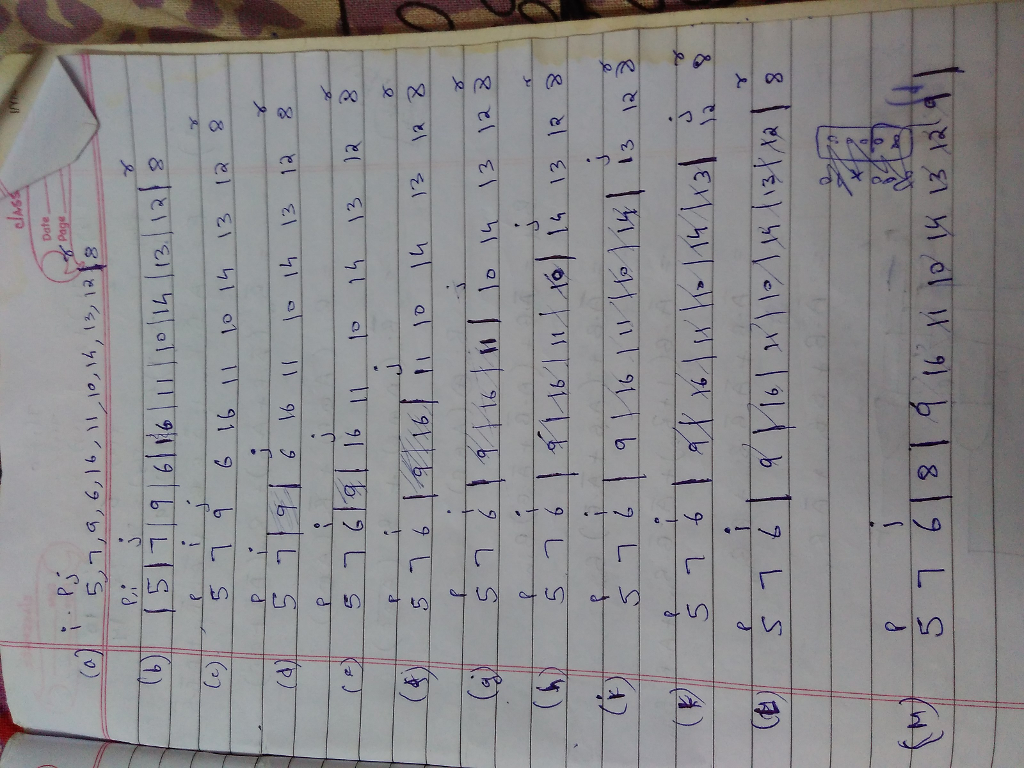 classmate
Date
Page
i P,j r
(a) 5, 7, 9, 6, 16, 11, 10, 14, 13, 12 | 8
P,i j r
(b) | 5 | 7 | 9 | 6 | 16 | 11 | 10 | 14 | 13 | 12 | 8
P i j r
(c) 5 7 9 6 16 11 10 14 13 12 8
P i j r
(d) 5 7 | 9 | 6 16 11 10 14 13 12 8
P i j r
(e) 5 7 6 | 9 | 16 11 10 14 13 12 8
P i j r
(f) 5 7 6 | 9 | 16 | 11 10 14 13 12 8
P i j r
(g) 5 7 6 | 9 | 16 | 11 | 10 14 13 12 8
P i j r
(h) 5 7 6 | 9 | 16 | 11 | 10 | 14 13 12 8
P i j r
(i) 5 7 6 | 9 | 16 | 11 | 10 | 14 | 13 12 8
P i j r
(k) 5 7 6 | 9 | 16 | 11 | 10 | 14 | 13 | 12 8
P i r
(l) 5 7 6 | 9 | 16 | 11 | 10 | 14 | 13 | 12 | 8
P i
(M) 5 7 6 | 8 | 9 16 11 10 14 13 12 9 |